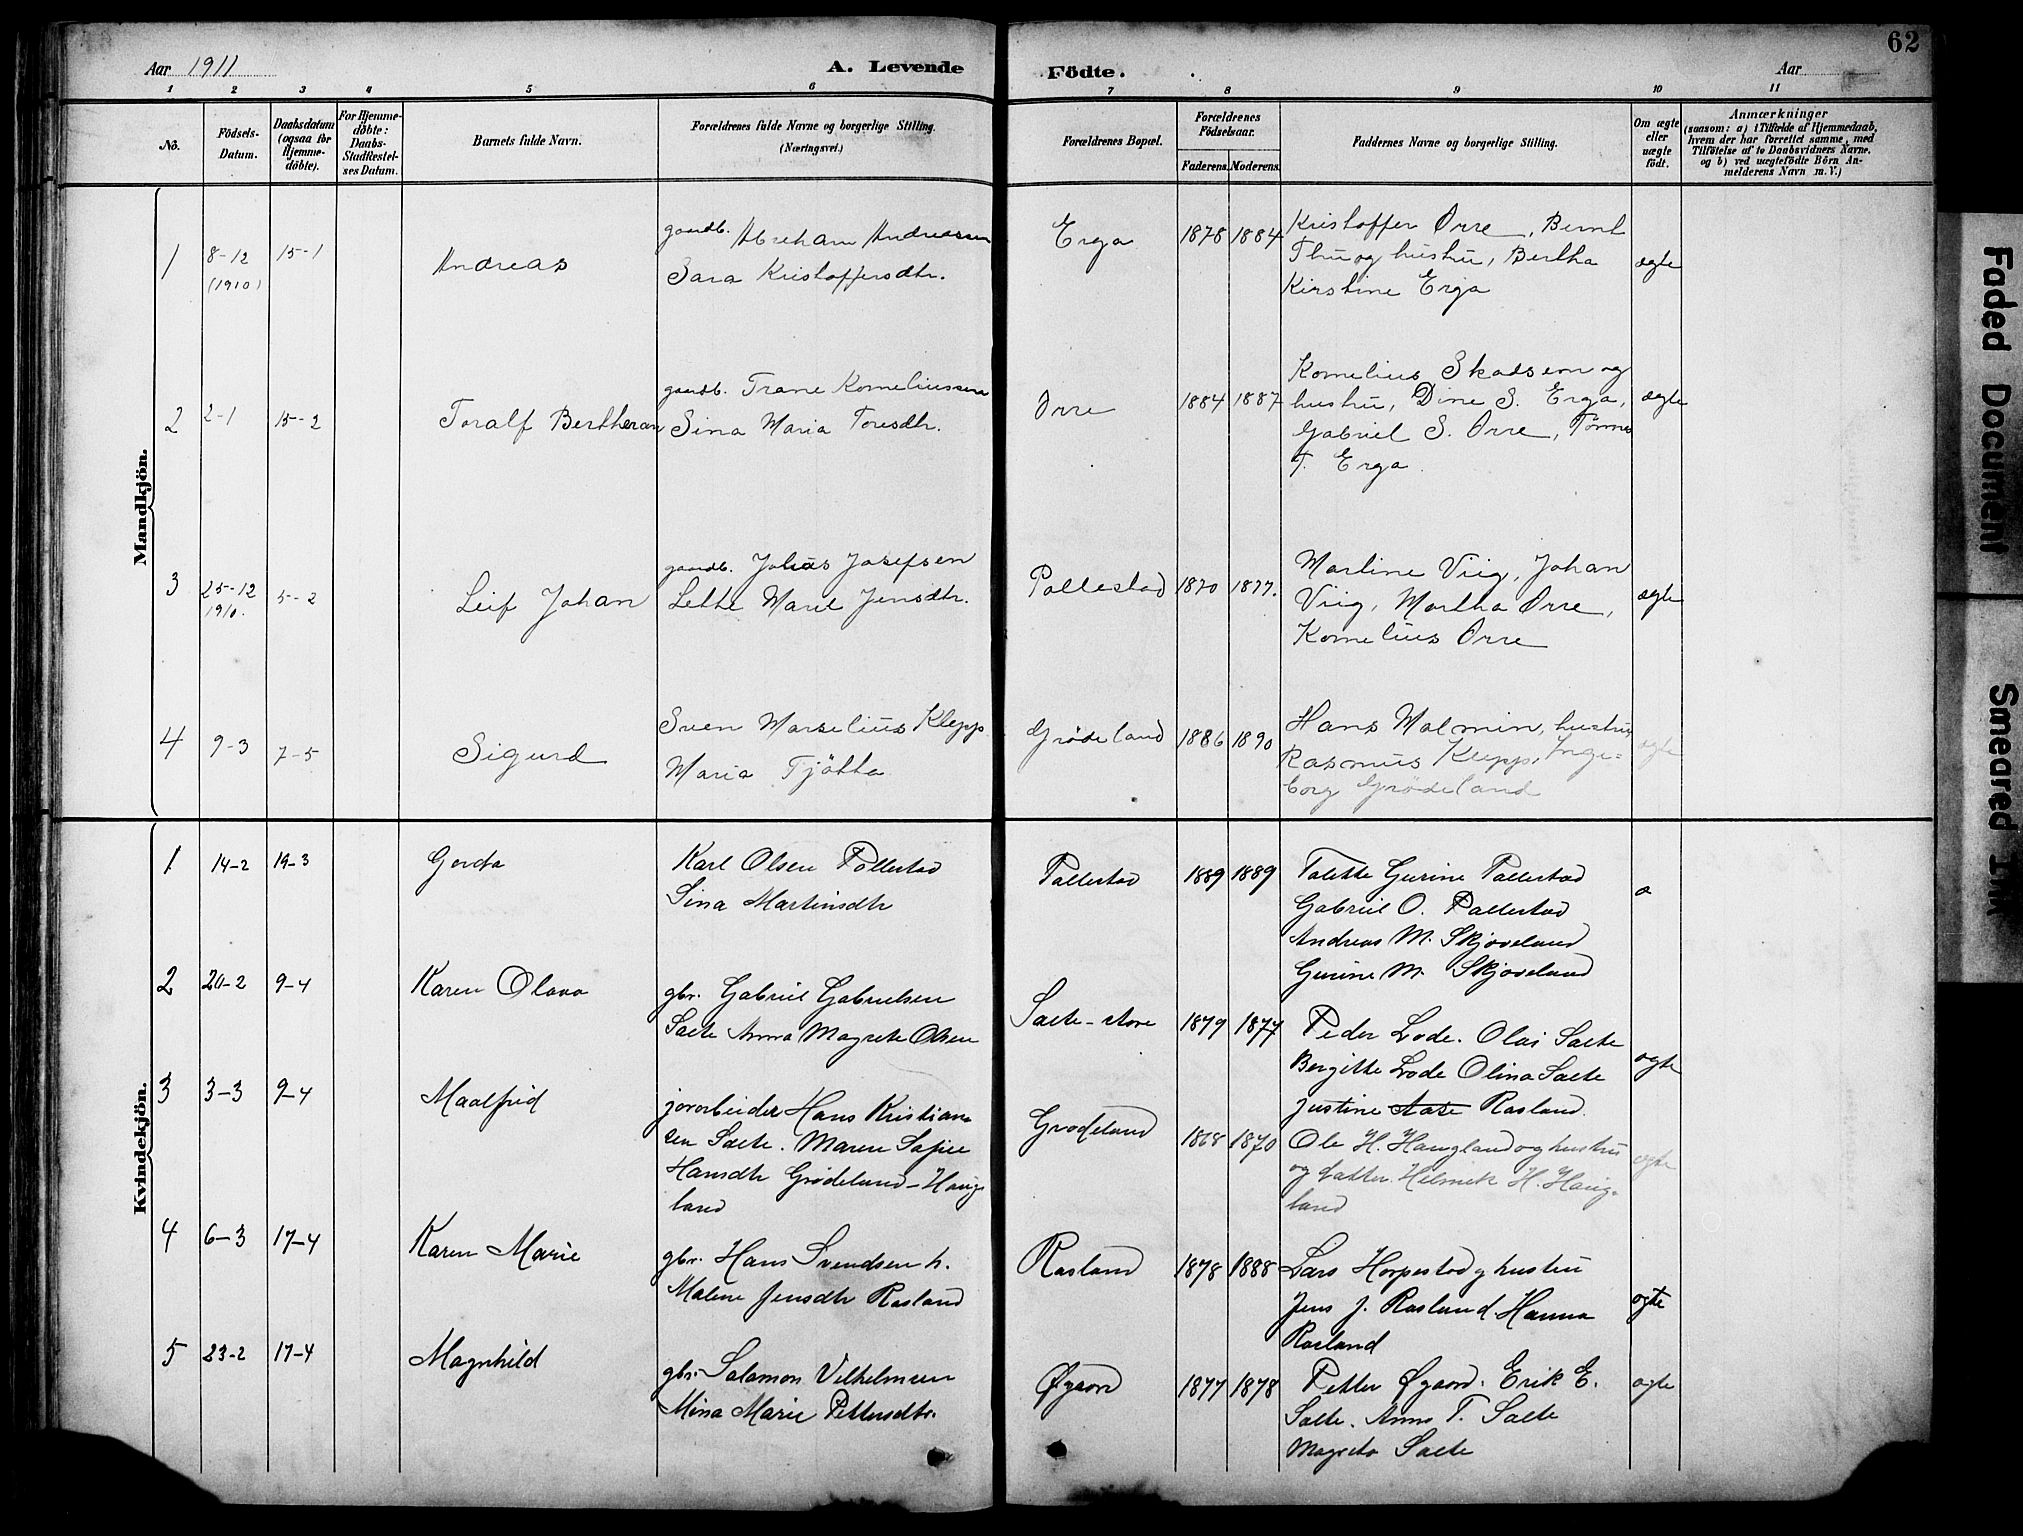 62
Aar 1911
A. Levende
Födte.
Aar
1 2 3 4 5 6 7 8 9 10 11
No.
Födsels-
Datum.
Daabsdatum
(ogsaa for
Hjemme-
döbte).
For Hjemme-
döbte:
Daabs-
Stadfæstel-
ses Datum.
Barnets fulde Navn.
Forældrenes fulde Navne og borgerlige Stilling.
(Næringsvei.)
Forældrenes Bopæl.
Forældrenes
Födselsaar.
Faderens.
Moderens.
Faddernes Navne og borgerlige Stilling.
Om ægte
eller
uægte
födt.
Anmærkninger
(saasom: a) i Tilfælde af Hjemmedaab,
hvem der har forrettet samme, med
Tilföielse af to Daabsvidners Navne.
og b) ved uægtefödte Börn An-
melderens Navn m. V.)
Mandkjön.
1 8-12 15-1 Andreas gaardb. Abraham Andreassen Erga 1878 1884 Kristoffer Orre, Bernt
(1910) Sara Kristoffersdtr. Thu og hustru, Bertha ægte
Kirstine Erga
2 2-1 15-2 Toralf Bertheran gaardb. Trane Korneliussen Orre 1884 1887 Kornelius Skadsem og
Sina Maria Toresdtr. hustru, Dine S. Erga, ægte
Gabriel S. Orre, Tønnes
T. Erga.
3 25-12 5-2 Leif Johan gaardb. Johas Josefsen Pollestad 1870 1877. Martine Viig, Johan
1910. Lette Marie Jensdtr. Viig, Martha Orre, ægte
Kornelius Orre
4 9-3 7-5 Sigurd Sven Marselius Klepp Grødeland 1886 1890 Hans Malmin, hustru,
Maria Tjøtta Rasmus Klepp, Inge- ægte
borg Grødeland
Kvindekjön.
1 14-2 19-3 Gerda Karl Olsen Pollestad Pollestad 1889 1889 Talette Gurine Pollestad
Sina Martinsdtr Gabriel O. Pollestad
Andreas M. Skjæveland
Gurine M. Skjæveland
2 20-2 9-4 Karen Olava gbr. Gabriel Gabrielsen Salte-store 1879 1877 Peder Lode. Olai Salte
Salte Anna Magrete Olsen Bergitte Lode Olina Salte ægte
Justine Aase Rasland.
3 3-3 9-4 Maalfrid jorarbeider Hans Kristian- Grødeland 1868 1870 Ole H. Haugland og hustru
sen Salte. Maren Sofie og datter. Helmik H. Haug- ægte
Hansdtr Grødeland-Haug- land
land
4 6-3 17-4 Karen Marie gbr. Hans Svendsen h. Rasland 1878 1888 Lars Horpestad og hustru
Malene Jensdtr Rasland Jens J. Rasland. Hanna ægte
Rasland
5 23-2 17-4 Magnhild gbr. Salamon Vilhelmsen Øgaard 1877 1878 Petter Øgaard. Erik E. ægte
Mina Marie Pettersdtr. Salte. Anna T. Salte
Magreta Salte
Faded Document
Smeared Ink